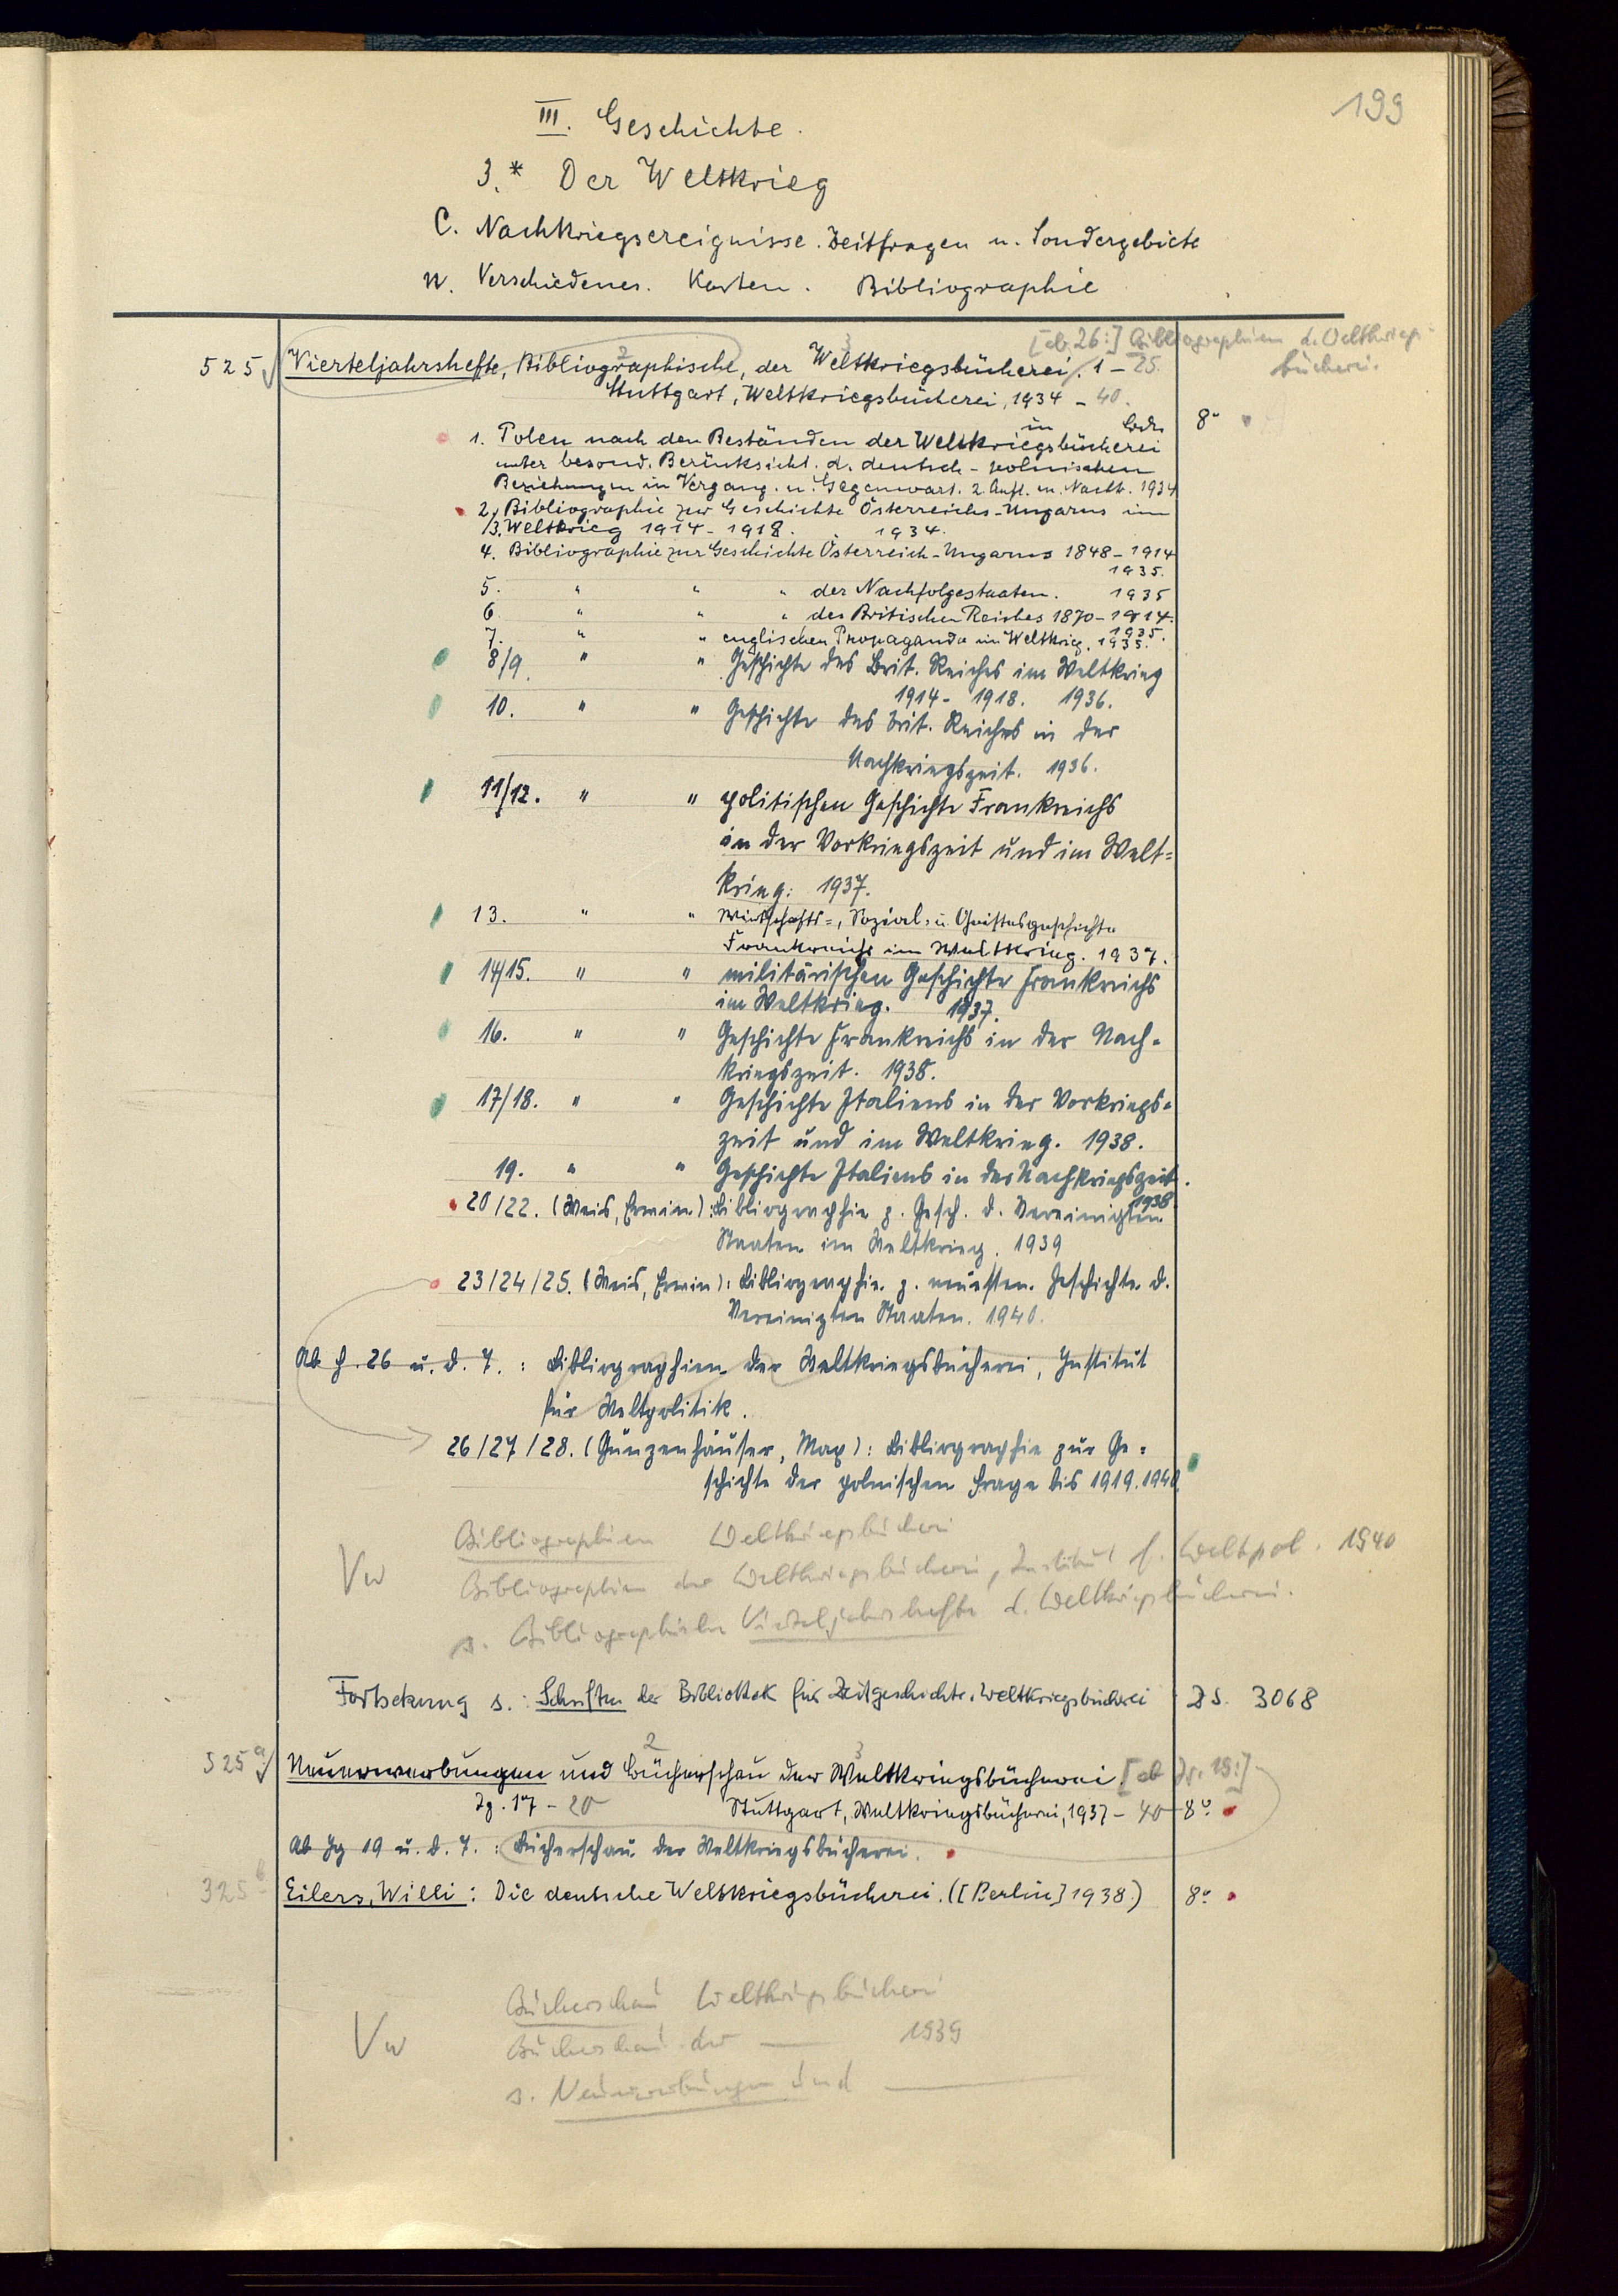 199
III. Geschichte.
3.* Der Weltkrieg
C. Nachkriegsereignisse. Zeitfragen u. Sondergebiete
n. Verschiedenes. Karten. Bibliographie
[ab 26:] Bibliographien d. Weltkriegs-
bücherei.
525 Vierteljahrshefte, Bibliographische, der Weltkriegsbücherei. 1 - 25.
Stuttgart, Weltkriegsbücherei, 1934 - 40.
in 8°
1. Polen nach den Beständen der Weltkriegsbücherei
unter besond. Berücksicht. d. deutsch-polnischen
Beziehungen in Vergang. u. Gegenwart. 2. Aufl. m. Nachtr. 1934
2./ Bibliographie zur Geschichte Österreichs-Ungarns im
/3. Weltkrieg 1914 - 1918. 1934.
4. Bibliographie zur Geschichte Österreich-Ungarns 1848 - 1914
1935.
5. " " " der Nachfolgestaaten. 1935
6 " " " des Britischen Reiches 1870 - 1914.
1935.
7. " " englischen Propaganda im Weltkrieg. 1935.
8/9. " " Geschichte des Brit. Reiches im Weltkrieg
1914 - 1918. 1936.
10. " " Geschichte des brit. Reiches in der
Nachkriegszeit. 1936.
11/12. " " politischen Geschichte Frankreichs
in der Vorkriegszeit und im Welt-
krieg: 1937.
13. " " Wirtschafts-, Sozial- u. Geistesgeschichte
Frankreichs im Weltkrieg. 1937.
14/15. " " militärischen Geschichte Frankreichs
im Weltkrieg. 1937.
16. " " Geschichte Frankreichs in der Nach-
kriegszeit. 1938.
17/18. " " Geschichte Italiens in der Vorkriegs-
zeit und im Weltkrieg. 1938.
19. " " Geschichte Italiens in der Nachkriegszeit.
1938
20/22. (Weis, Erwin): Bibliographie z. Gesch. d. Vereinigten
Staaten im Weltkrieg. 1939
23/24/25. (Weis, Erwin): Bibliographie z. neuesten Geschichte d.
Vereinigten Staaten. 1940.
Ab H. 26 u. d. T.: Bibliographien der Weltkriegsbücherei, Institut
für Weltpolitik.
26/27/28. (Gunzenhäuser, Max): Bibliographie zur Ge-
schichte der polnischen Frage bis 1919. 1940.
Bibliographien Weltkriegsbücherei
Vw Bibliographien der Weltkriegsbücherei, Institut f. Weltpol. 1940
s. Bibliographische Vierteljahrshefte d. Weltkriegsbücherei.
Fortsetzung s.: Schriften der Bibliothek für Zeitgeschichte. Weltkriegsbücherei ZS. 3068
525a Neuerwerbungen und Bücherschau der Weltkriegsbücherei. [ab Jg. 19:]
Jg. 17 - 20 Stuttgart, Weltkriegsbücherei, 1937 - 40 8°.
Ab Jg 19 u. d. T.: Bücherschau der Weltkriegsbücherei.
325b Eilers, Willi: Die deutsche Weltkriegsbücherei. ([Berlin] 1938.) 8°.
Bücherschau Weltkriegsbücherei
Vw Bücherschau der — 1939
s. Neuerwerbungen und —